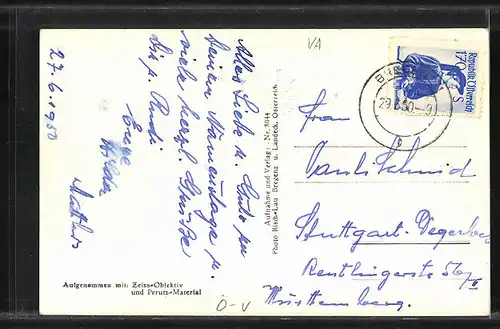 VA
27.6.1950
Alles Liebe u. Gute zu
Deinem Namenstage u.
viele herzl. Grüße
Dir u. Rudi
Eure
Hilda
Aufnahme und Verlag: Nr. 8044
Photo Risch-Lau Bregenz u. Landeck, Österreich
Aufgenommen mit: Zeiss-Objektiv
und Perutz-Material
Ö-V
REPUBLIK ÖSTERREICH
1.70 S
29.6.50-9
b
Frau
Paula Schmid
Stuttgart-Degerloch
Reutlingerstr. 56
Württemberg.